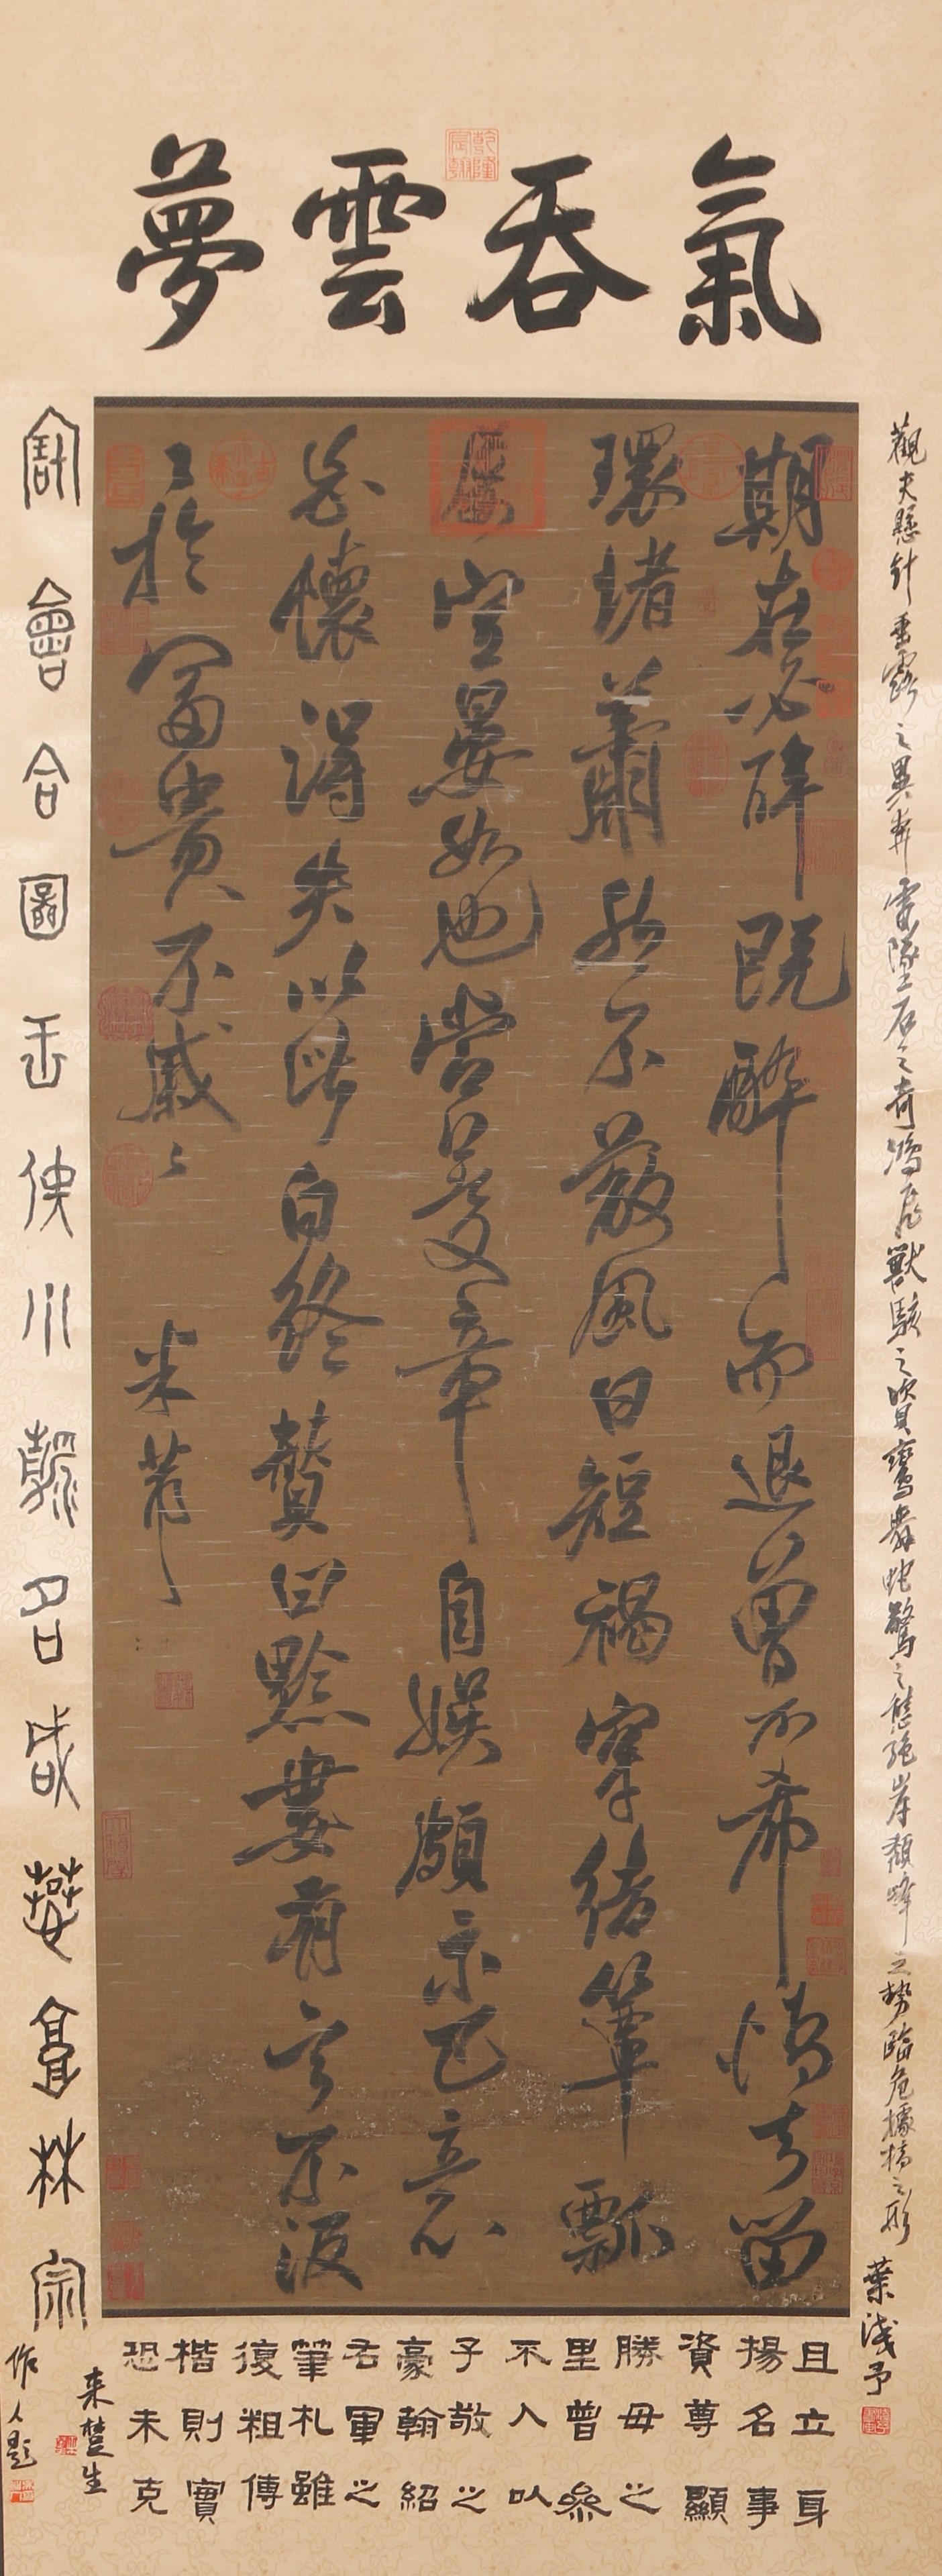 氣吞雲夢
乾隆宸翰
觀夫懸針垂露之異奔雷墜石之奇鴻飛獸駭之資鸞舞蛇驚之態絕岸頹峰之勢臨危據槁之形
葉淺予
期在必醉既醉而退曾不希情去留
環堵蕭然不蔽風日短褐穿結簞瓢
屢空晏如也嘗著文章自娛頗示己志
忘懷得失以此自終贊曰黔婁有言不汲
〻於富貴不戚〻
米芾
會合圖
使川
名成
林宗
作人題
且立身
揚名事
資尊顯
勝母之
里曾參
不入以
子敬之
豪翰紹
右軍之
筆札雖
復粗傳
楷則實
恐未克
來楚生